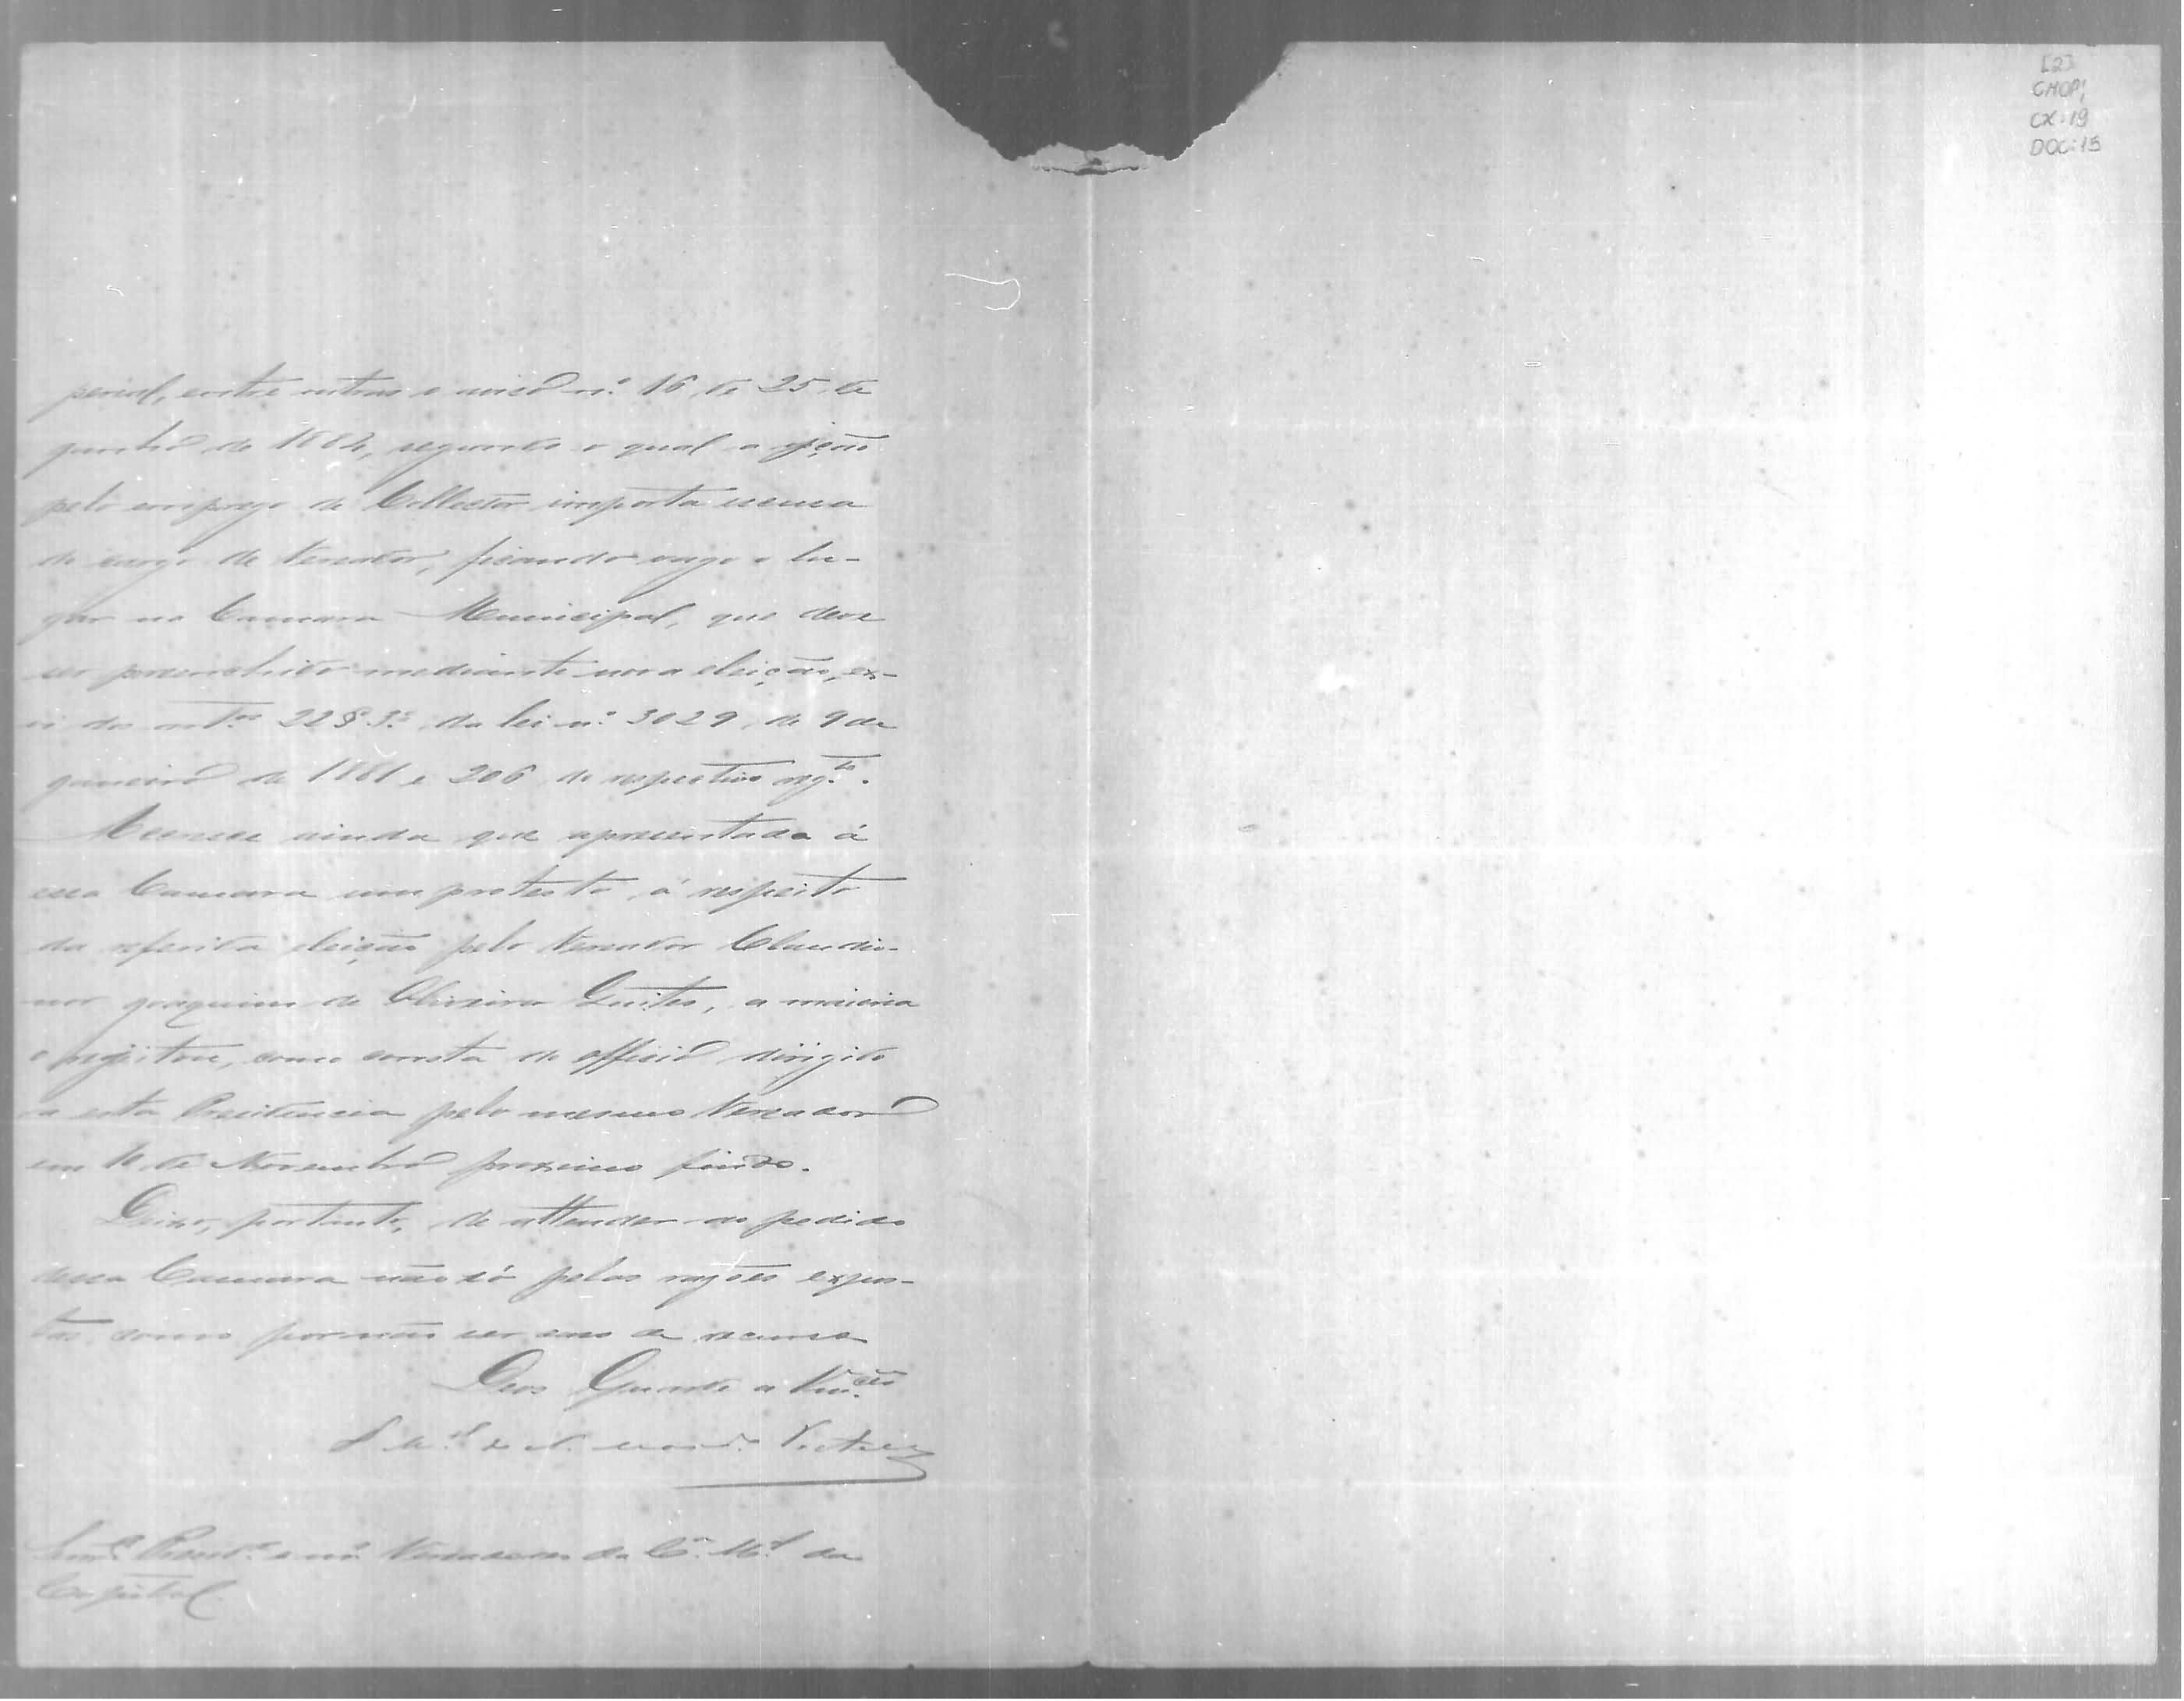 perial, entre outros o aviso n.º 16, de 25, de
junho de 1882, segundo o qual a opção
pelo emprego de Collector importa recusa
do cargo de Vereador, ficando vago o lu-
gar na Camara Municipal, que deve
ser preenchido mediante nova eleição, ex-
vi dos art.os 22 § 3.º da lei n.º 3029, de 9 de
janeiro de 1881 e 206 do respectivo reg.to.
Accresce ainda que apresentado á
essa Camara um protesto, á respeito
da referida eleição pelo Vereador Claudio-
nor Joaquim de Oliveira Quites, a maioria
o rejeitou, como consta do officio dirigido
a esta Presidencia pelo mesmo Vereador
em 10 de Novembro proximo findo.
Deixo, portanto, de attender ao pedido
dessa Camara não só pelas rasões expos-
tas, como por não ser caso de recurso
Deos Guarde a Vm.ces
Snr.s Presid.e e m.s Vereadores da C.a M.l da
Capital.
[2]
CMOP;
CX: 19
DOC: 15